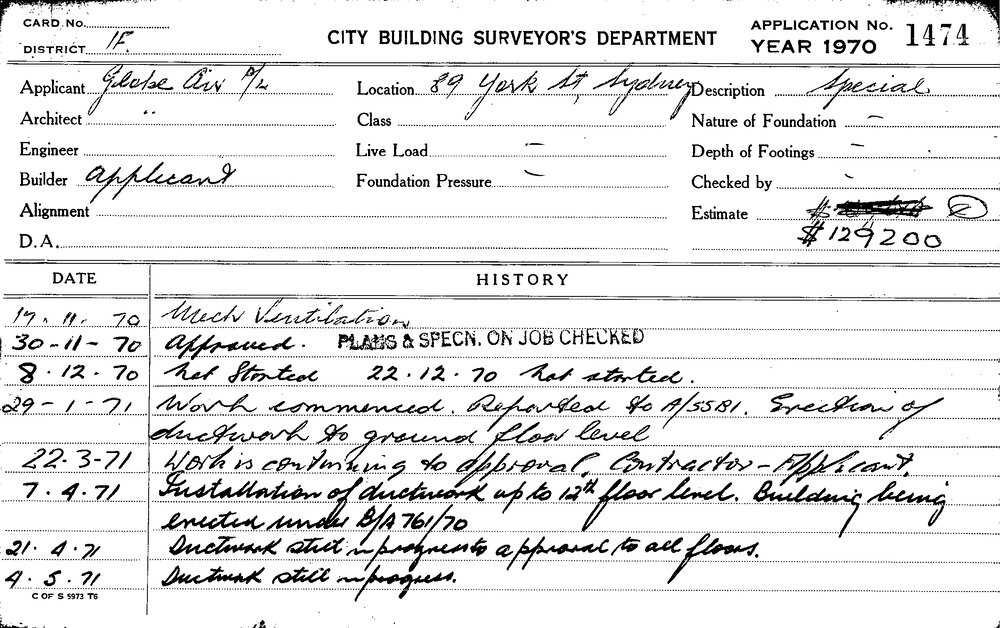 CARD No.
DISTRICT 1F.
CITY BUILDING SURVEYOR'S DEPARTMENT
APPLICATION No. 1474
YEAR 1970
Applicant Globe Air P/L
Location 89 York St, Sydney
Description Special
Architect "
Class
Nature of Foundation —
Engineer
Live Load —
Depth of Footings —
Builder Applicant
Foundation Pressure —
Checked by -
Alignment
Estimate $
D.A.
$129200
DATE HISTORY
17. 11. 70 Mech Ventilation
30-11-70 Approved. PLANS & SPECN. ON JOB CHECKED
8.12.70 Not Started 22.12.70 Not started.
29-1-71 Work commenced. Reported to A/SSBI. Erection of
ductwork to ground floor level
22.3-71 Work is continuing to approval. Contractor - Applicant.
7.4.71 Installation of ductwork up to 12th floor level. Building being
erected under B/A 761/70
21.4.71 Ductwork still in progress to approval to all floors.
4.5.71 Ductwork still in progress.
C OF S 5973 T6